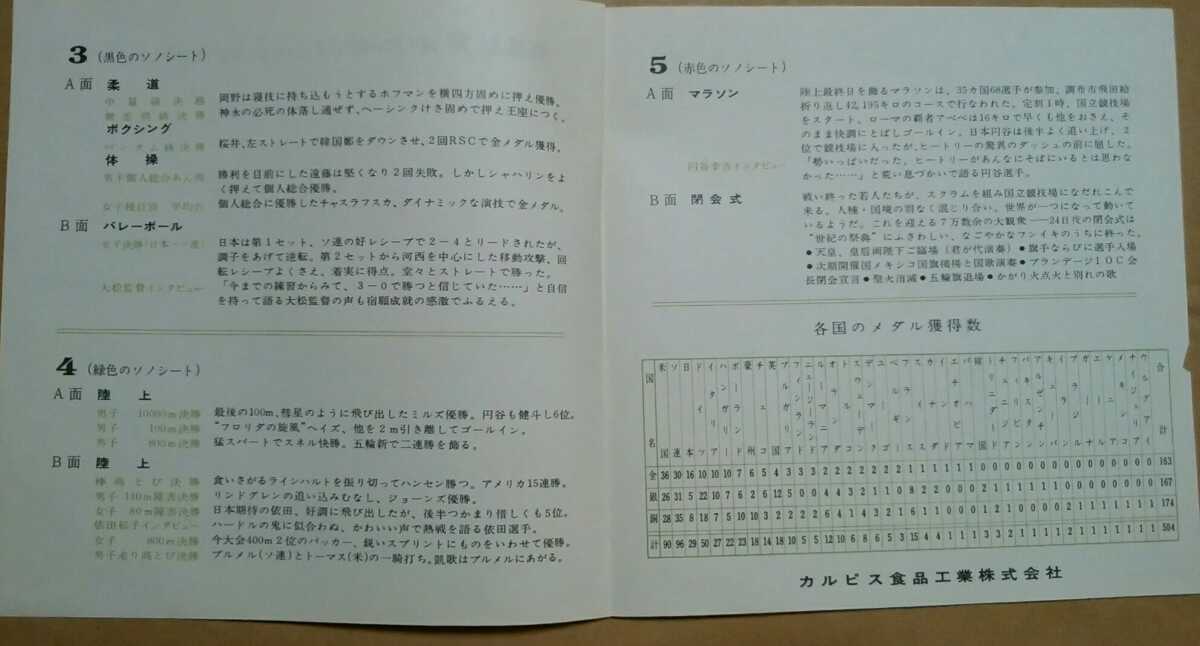 3 (黒色のソノシート)
A面 柔道
中量級決勝 岡野は寝技に持ち込もうとするホフマンを横四方固めに押え優勝。
無差別級決勝 神永の必死の体落し通ぜず、ヘーシンクけさ固めで押え王座につく。
ボクシング
バンタム級決勝 桜井、左ストレートで韓国鄭をダウンさせ、2回RSCで金メダル獲得。
体操
男子個人総合あん馬 勝利を目前にした遠藤は堅くなり2回失敗。しかしシャハリンをよ
く押えて個人総合優勝。
女子種目別 平均台 個人総合に優勝したチャスラフスカ、ダイナミックな演技で金メダル。
B面 バレーボール
女子決勝(日本―ソ連) 日本は第1セット、ソ連の好レシーブで2−4とリードされたが、
調子をあげて逆転。第2セットから河西を中心にした移動攻撃、回
転レシーブよくさえ、着実に得点。堂々とストレートで勝った。
大松監督インタビュー 「今までの練習からみて、3−0で勝つと信じていた……」と自信
を持って語る大松監督の声も宿願成就の感激でふるえる。
4 (緑色のソノシート)
A面 陸上
男子 10000m決勝 最後の100m、彗星のように飛び出したミルズ優勝。円谷も健斗し6位。
男子 100m決勝 “フロリダの旋風”ヘイズ、他を2m引き離してゴールイン。
男子 800m決勝 猛スパートでスネル快勝。五輪新で二連勝を飾る。
B面 陸上
棒高とび決勝 食いさがるラインハルトを振り切ってハンセン勝つ。アメリカ15連勝。
男子 110m障害決勝 リンドグレンの追い込みむなし、ジョーンズ優勝。
女子 80m障害決勝 日本期待の依田、好調に飛び出したが、後半つかまり惜しくも5位。
依田郁子インタビュー ハードルの鬼に似合わぬ、かわいい声で熱戦を語る依田選手。
女子 800m決勝 今大会400m2位のパッカー、鋭いスプリントにものをいわせて優勝。
男子走り高とび決勝 ブルメル(ソ連)とトーマス(米)の一騎打ち。凱歌はブルメルにあがる。
5 (赤色のソノシート)
A面 マラソン
陸上最終日を飾るマラソンは、35カ国68選手が参加、調布市飛田給
折り返し42,195キロのコースで行なわれた。定刻1時、国立競技場
をスタート。ローマの覇者アベベは16キロで早くも他をおさえ、そ
のまま快調にとばしゴールイン。日本円谷は後半よく追い上げ、2
位で競技場に入ったが、ヒートリーの驚異のダッシュの前に屈した。
円谷幸吉インタビュー 「勢いっぱいだった。ヒートリーがあんなにそばにいるとは思わな
かった……」と荒い息づかいで語る円谷選手。
B面 閉会式
戦い終った若人たちが、スクラムを組み国立競技場になだれこんで
来る。人種・国境の別なく混じり合い、世界が一つになって動いて
いるようだ。これを迎える7万数余の大観衆──24日夜の閉会式は
“世紀の祭典”にふさわしい、なごやかなフンイキのうちに終った。
●天皇、皇后両陛下ご臨場(君が代演奏)●旗手ならびに選手入場
●次期開催国メキシコ国旗掲揚と国歌演奏●ブランデージIOC会
長閉会宣言●聖火消滅●五輪旗退場●かがり火点火と別れの歌
各国のメダル獲得数
国名 米国 ソ連 日本 ドイツ イタリア ハンガリー ポーランド 豪州 チェコ 英国 ブルガリア フィンランド ニュージーランド ルーマニア オランダ トルコ スウェーデン デンマーク ユーゴ ベルギー フランス スイス カナダ インド エチオピア バハマ 韓国 トリニダード チュニジア フィリピン アルゼンチン キューバ パキスタン イラン アイルランド ガーナ ケニア メキシコ ナイジェリア ウルグアイ 合計
金 36 30 16 10 10 10 7 6 5 4 3 3 3 2 2 2 2 2 2 2 1 1 1 1 1 1 163
銀 167
銅 174
計 90 96 29 50 27 22 23 18 14 18 10 5 5 12 10 6 8 6 5 3 15 4 4 504
カルピス食品工業株式会社